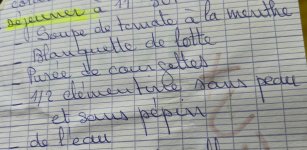 déjeuner à 11
- Soupe de tomate à la menthe
- Blanquette de lotte
- Purée de courgettes
- 1/2 clémentine sans peau
et sans pépin
- de l'eau